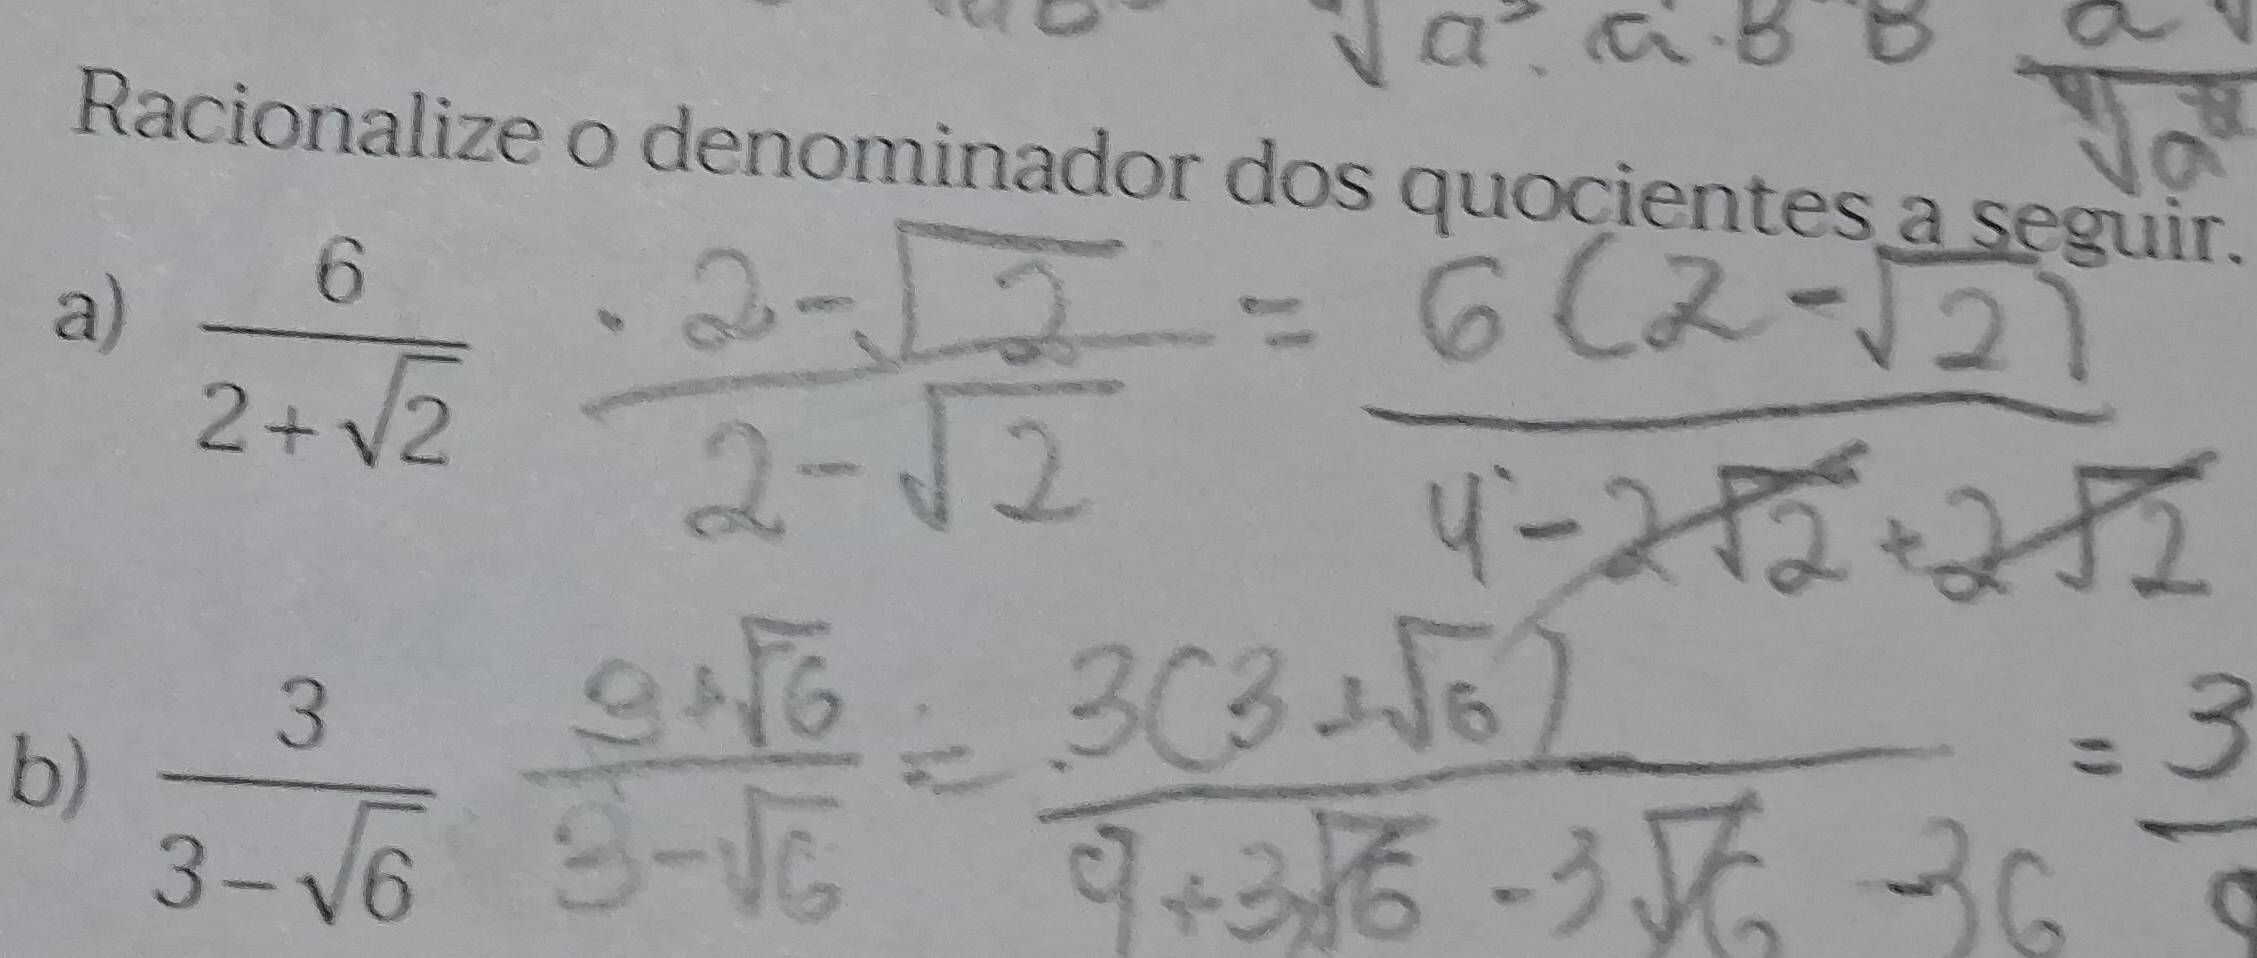 √a³. a.B B a
Racionalize o denominador dos quocientes a seguir.
a) 6/(2+√2) · (2-√2)/(2-√2) = 6(2-√2)/(4-2√2+2√2
b) 3/(3-√6) (3+√6)/(3-√6) = 3(3+√6)/(9+3√6-3√6-36) = 3/9